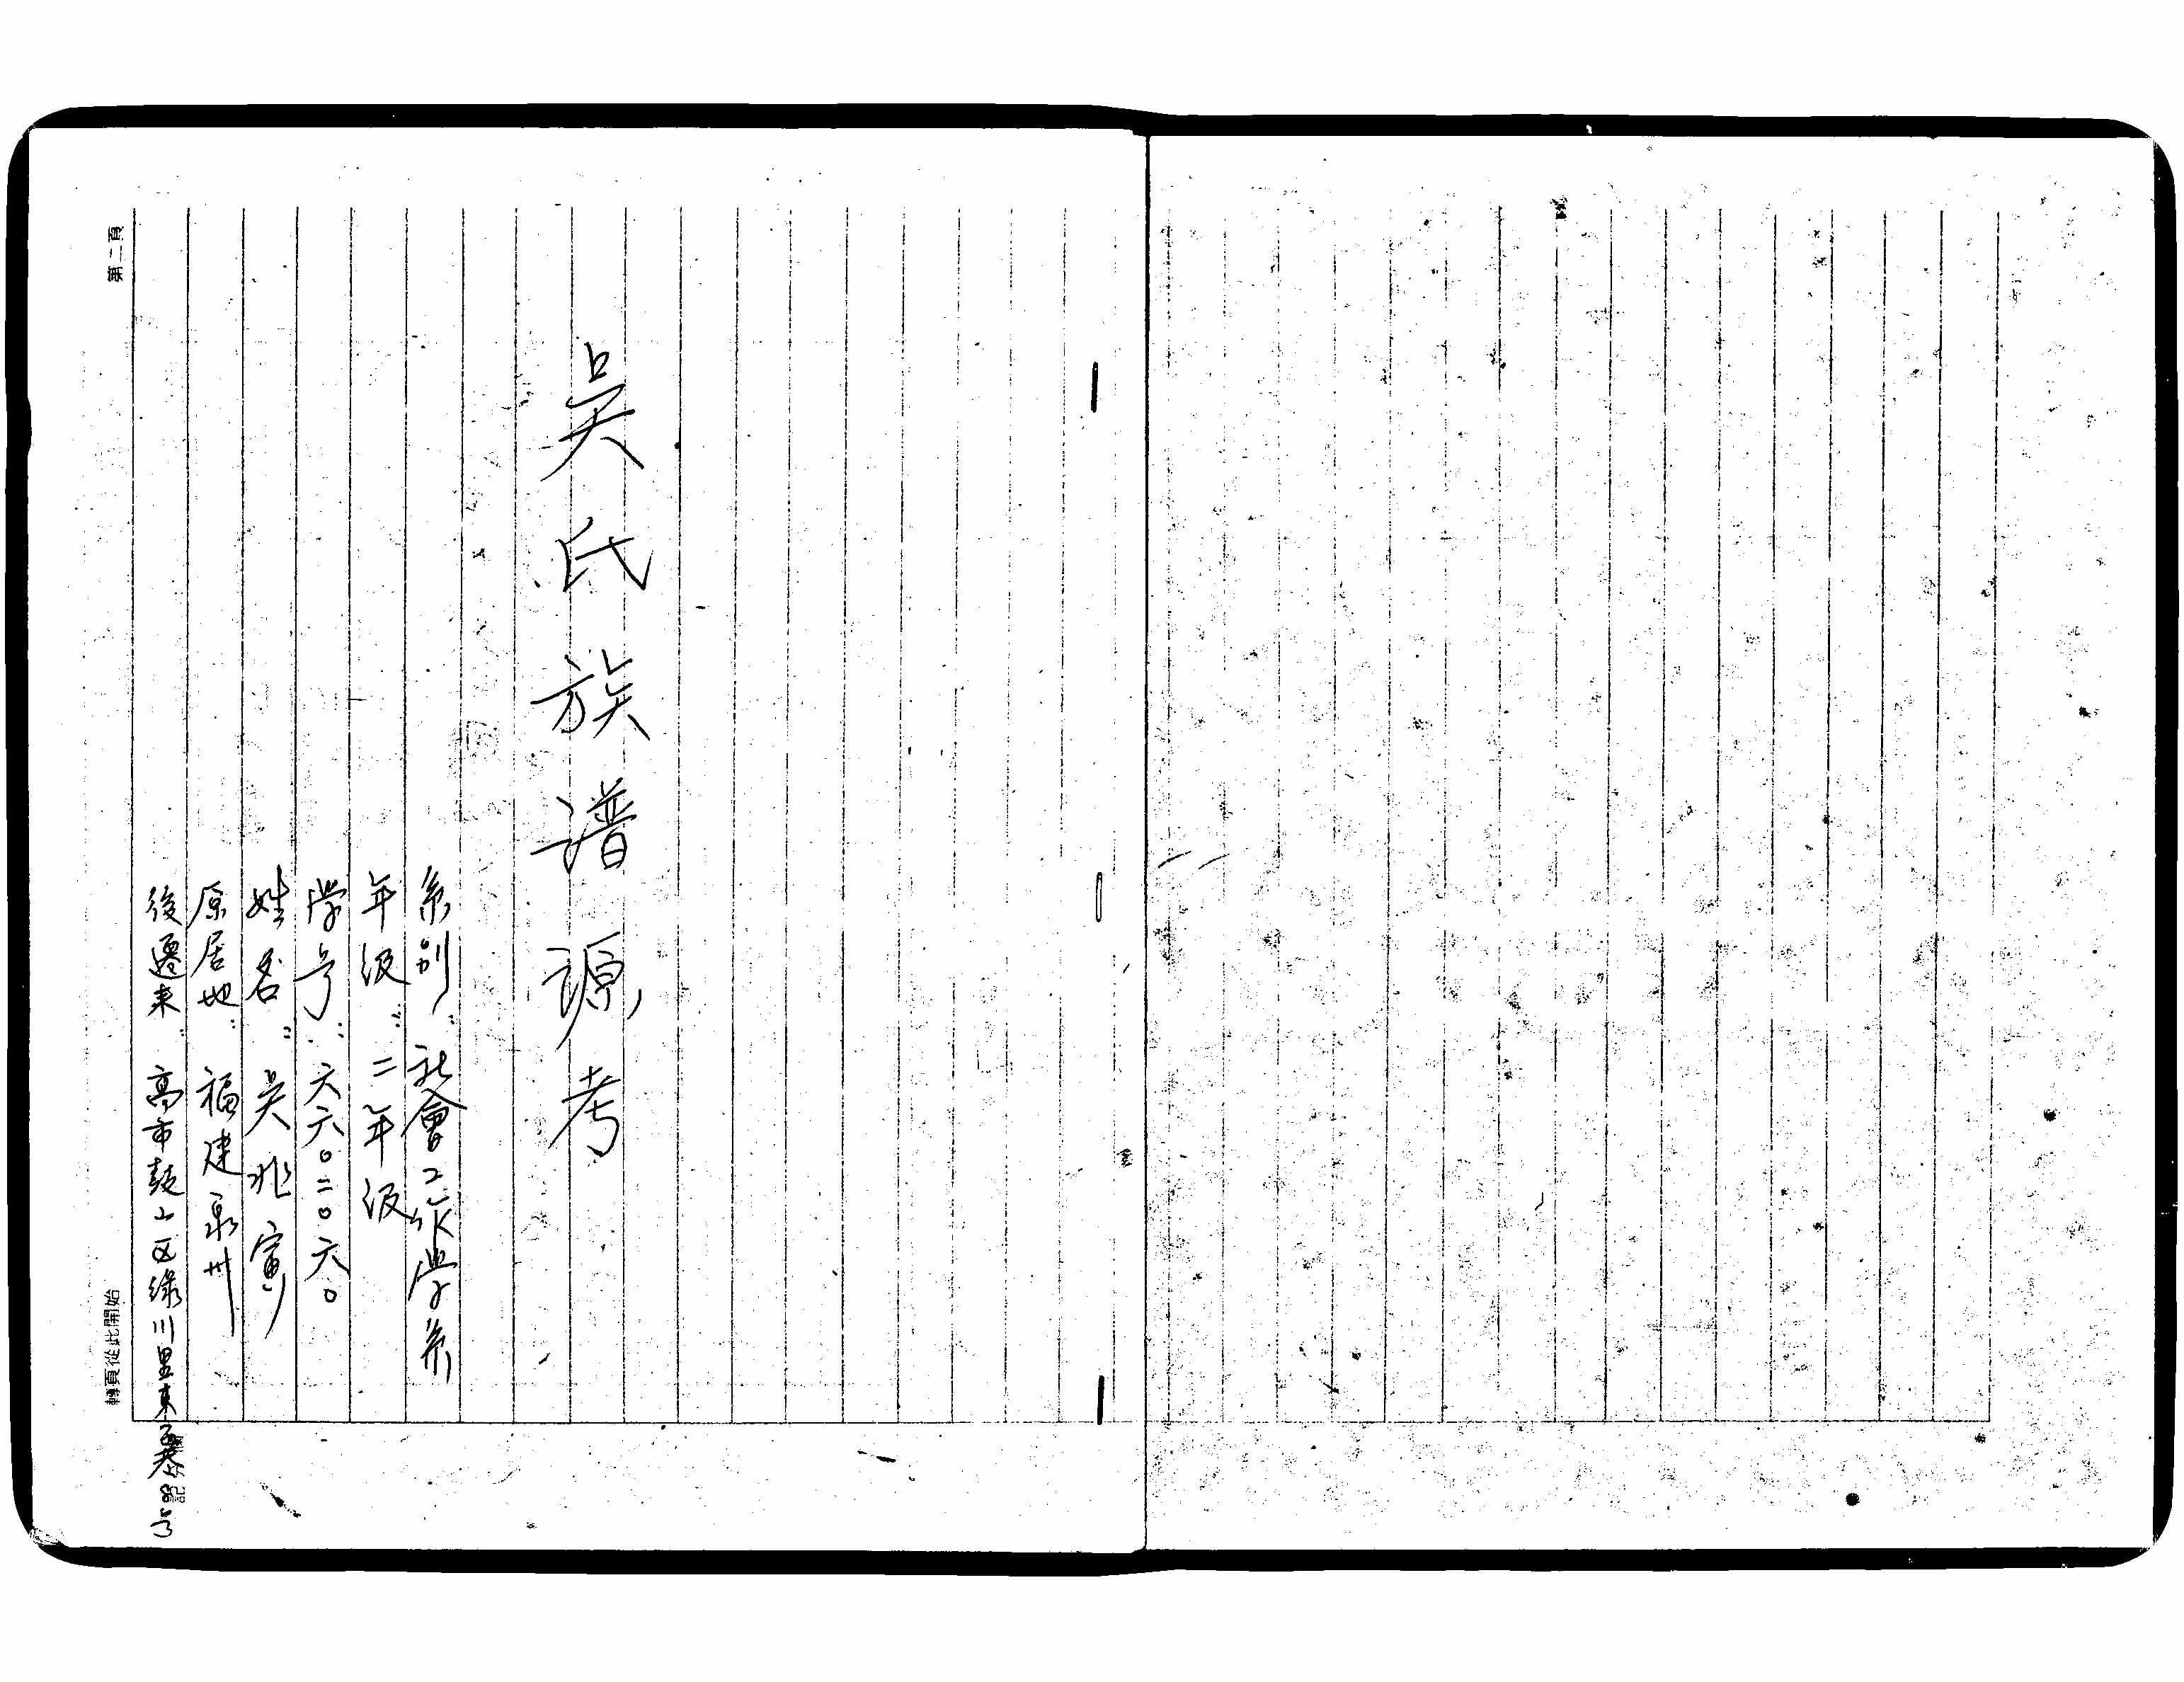 吳氏族譜源考
系別：社會工作学系
年級：二年級
学号：六六〇二〇六〇
姓名：吳兆寅
原居地：福建泉州
後遷来：高市鼓山区綠川里東八巷8号
第二頁
轉頁從此開始